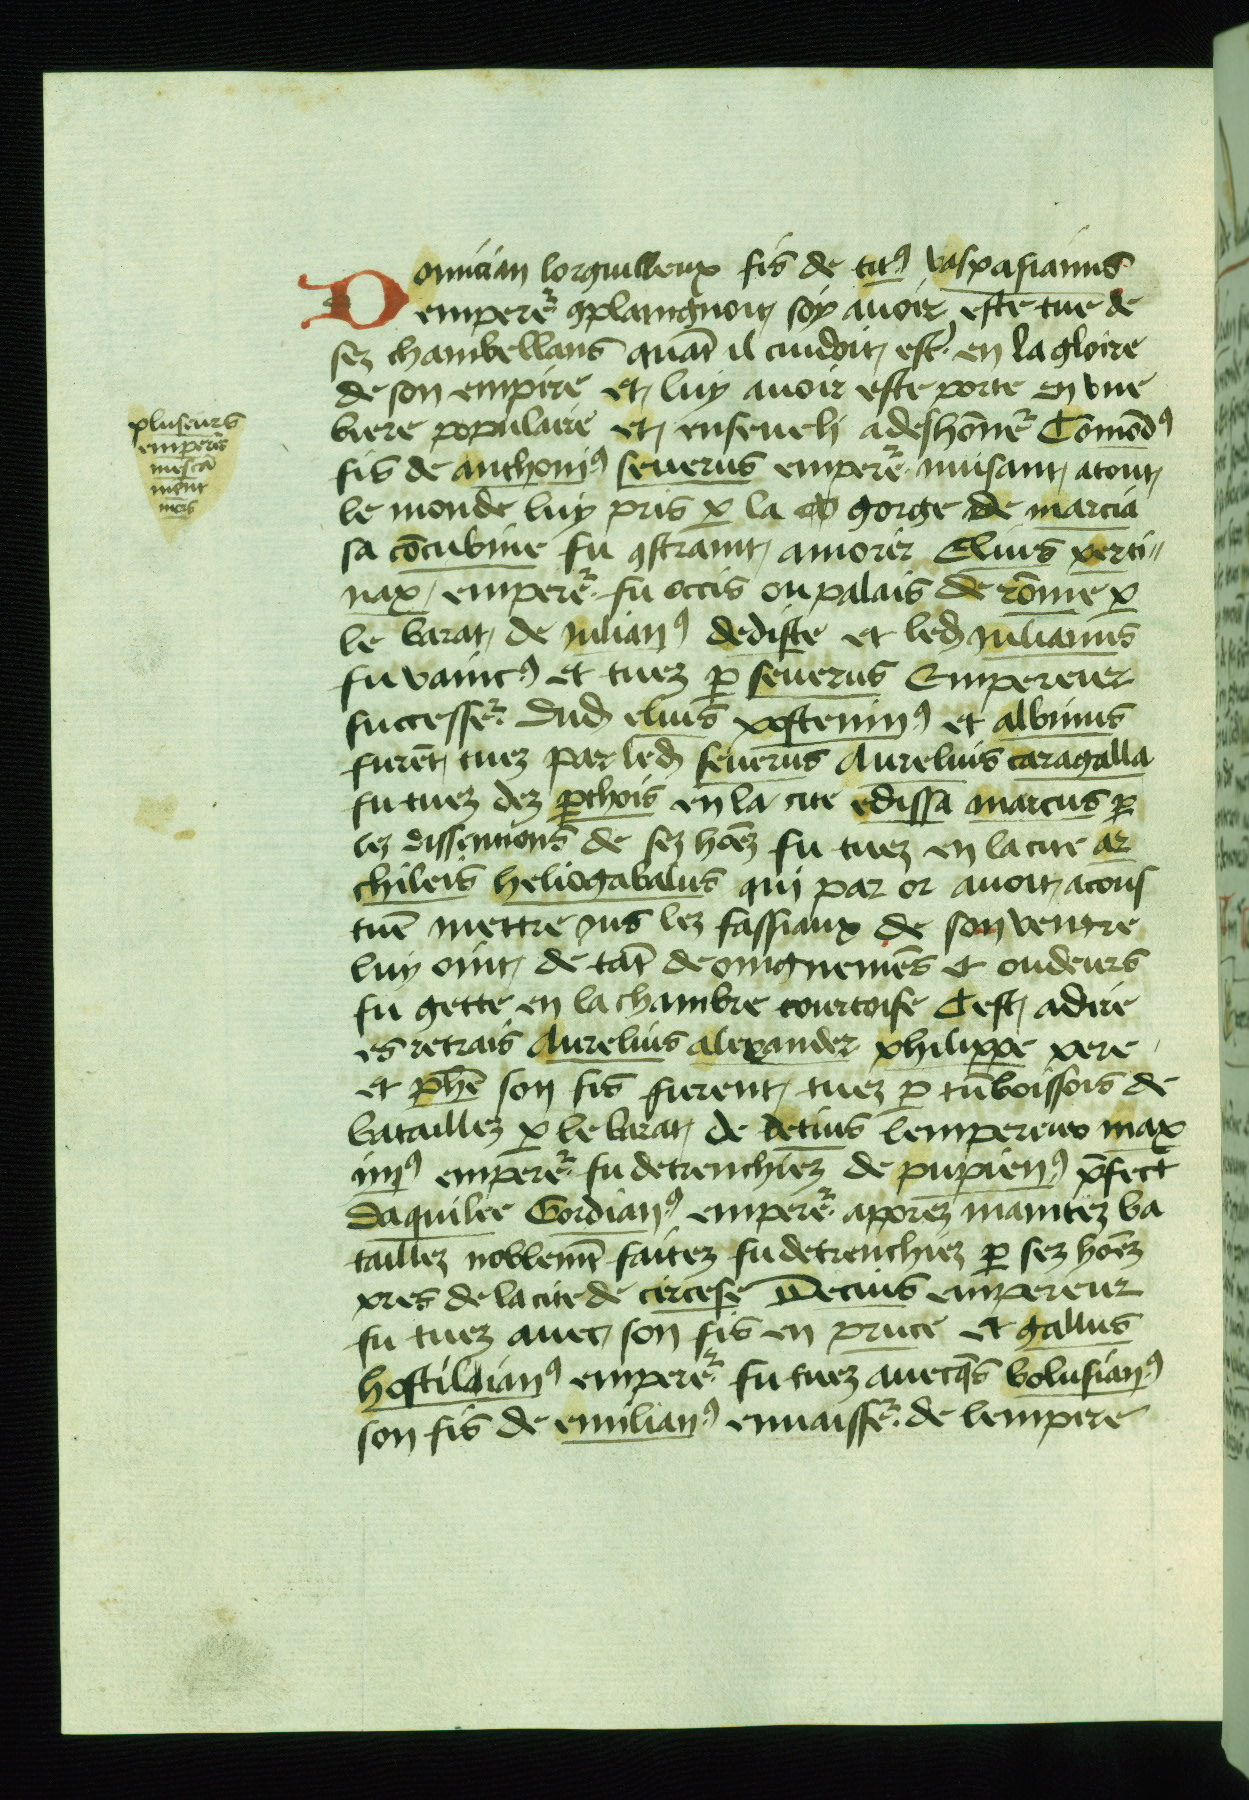 Domician lorguilleux fis de titꝰ vaspasianus
emperer̃ ꝯplaingnoit soy auoir este tue de
sez chambellans quãt il cuidoit estr̃ en la gloire
de son empire et luy auoir este porte en vne
biere populaire et enseueli a deshõner̃ Comõdꝰ
pluseurs
emperrs̃
mescã
ment
mors
fis de anthoniꝰ seuerus emperer̃ nuisant atout
le monde luy pris ꝑ la gorge de marcia
sa cõcubine fu ꝯstraint amorir Elius perti"
nax emperer̃ fu occis ou palais de rõme ꝑ
le barat de iulianꝰ dediste et led iulianus
fu vaincꝰ et tuez ꝑ seuerus Empereur
successer̃ dud elius pestenniꝰ et albinus
furẽt tuez par led seuerus Aurelius caragalla
fu tuez dez ꝑthois en la cite edissa marcus ꝑ
lez dissentions de sez hõez fu tuez en la cite ar
chileis heliogabalus qui par or auoit acous
tuẽ mettre ius lez fassiaux de son ventre
luy oint de tãt de oingnemẽs et oudeurs
fu gette en la chambre courtoise Cest adire
es retrais Aurelius alexander philippe pere
et phẽ son fis furent tuez ꝑ tũboissois de
bataillez ꝑ le barat de detius lempereur max
imꝰ emperer̃ fu detrenchiez de pupienꝰ p̃fect
daquilee Gordianꝰ emperer̃ aporez maintez ba
taillez noblemt̃ faitez fu detrenchiez ꝑ sez hõez
pres de la cite de circese Decius empereur
fu tuez auec son fis en pruce et gallus
hostilianꝰ emperer̃ fu tuez auecqs̃ volusianꝰ
son fis de emilianꝰ enuaisser̃ de lempire